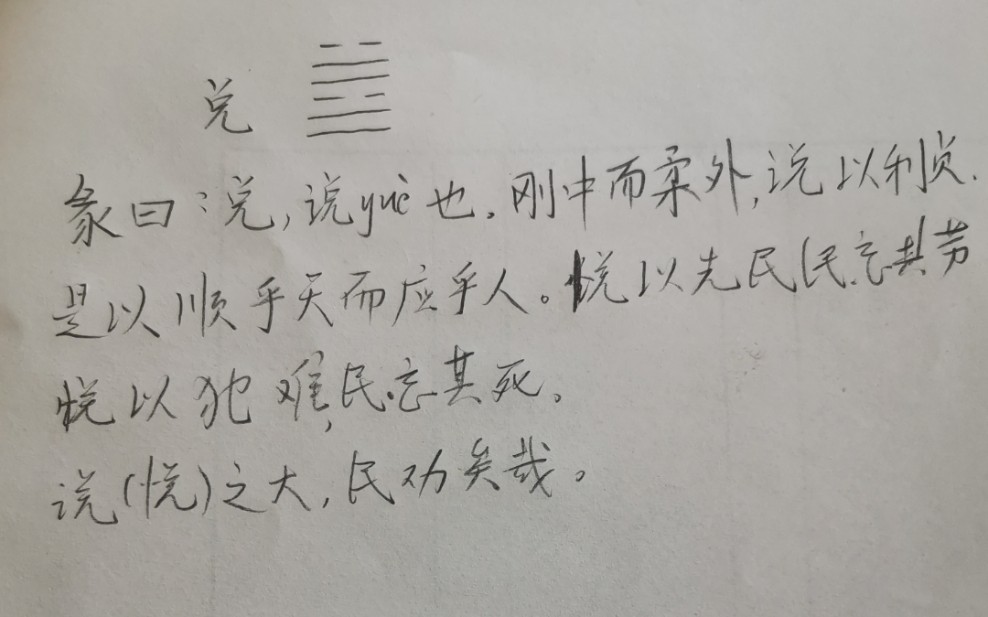 兑
彖曰:兑,说yuè也。刚中而柔外,说以利贞.
是以顺乎天而应乎人。悦以先民民忘其劳
悦以犯难,民忘其死。
说(悦)之大,民劝矣哉。